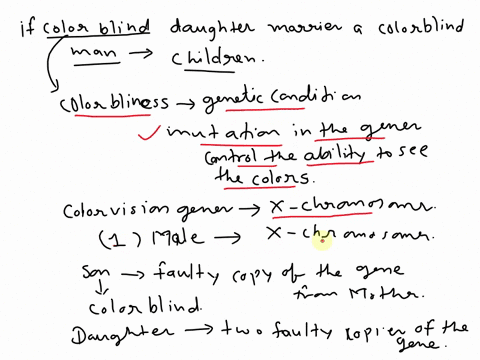 if color blind daughter marrier a colorblind
man → children.
colorbliness → genetic condition
✓ mutation in the gener
control the ability to see
the colors.
Colorvision gener → X-chromosomr.
(1) Male → X-chromosomr.
Son → faulty copy of the gene
from Mother.
colorblind.
Daughter → two faulty copier of the
gene.